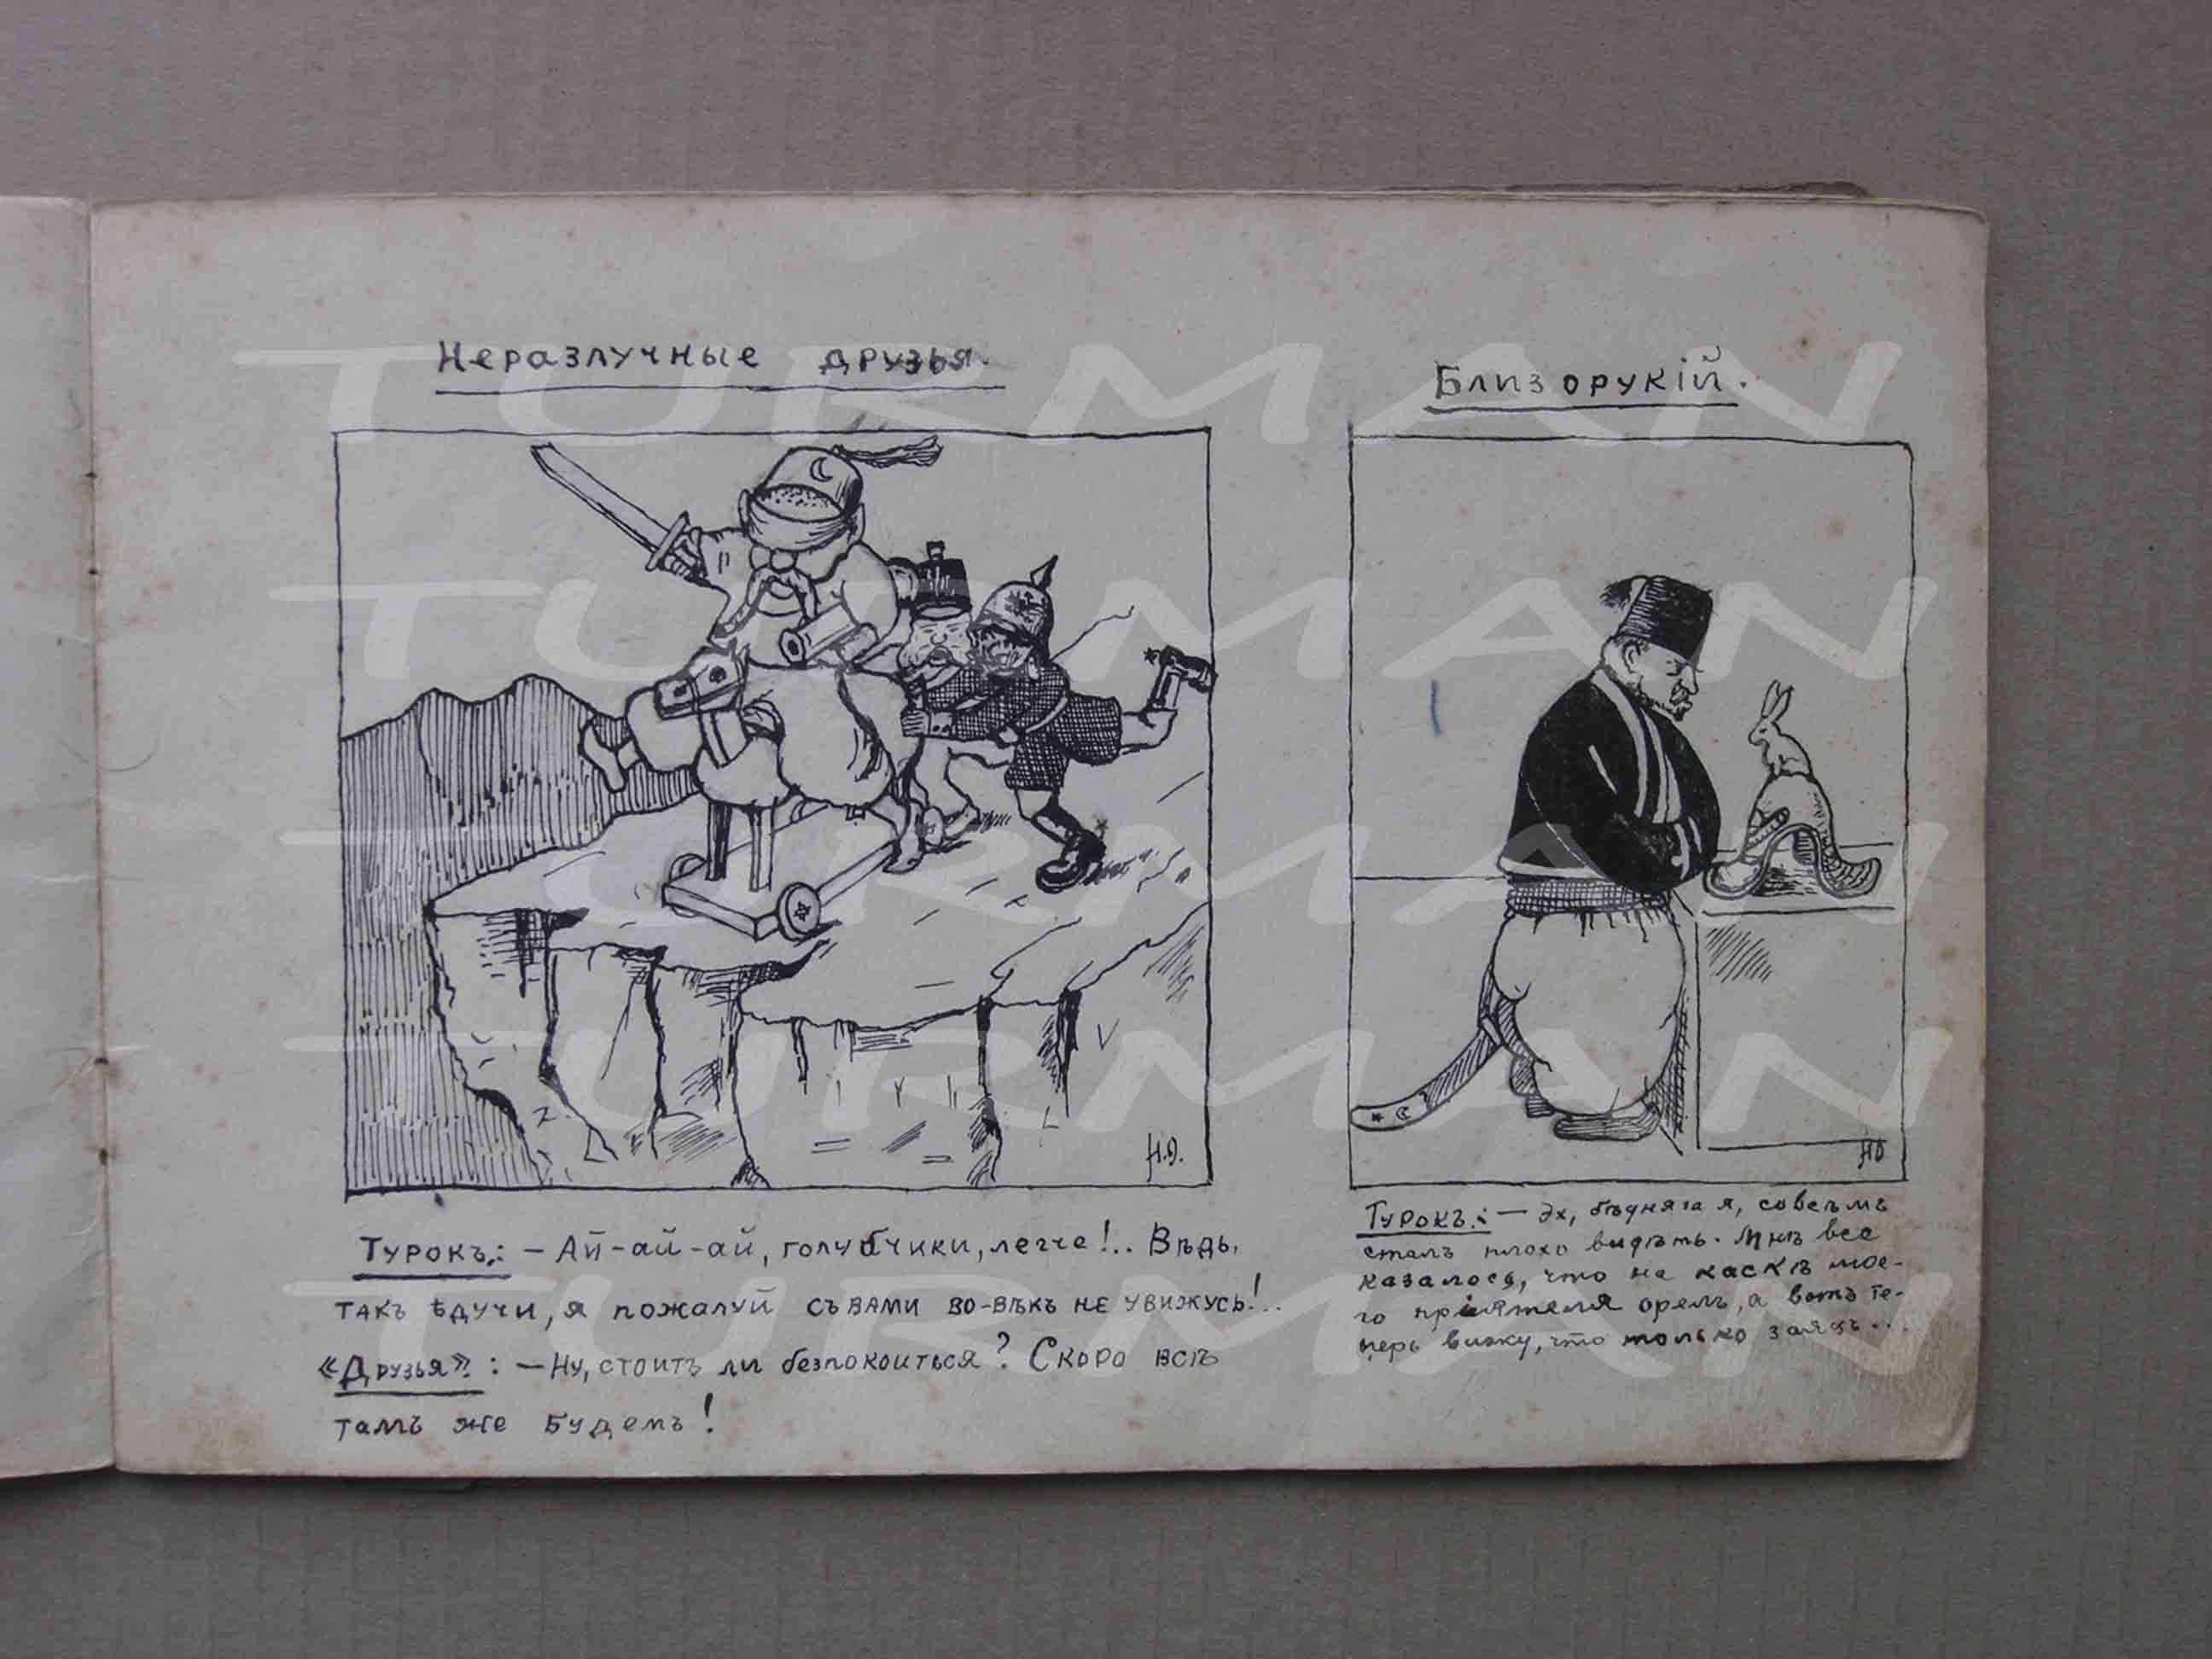 Неразлучные друзья.
Турокъ: – Ай-ай-ай, голубчики, легче!.. Вѣдь,
такъ ѣдучи, я пожалуй съ вами во-вѣкъ не увижусь!..
«Друзья»: – Ну, стоитъ ли безпокоиться? Скоро всѣ
тамъ же будемъ!
Н.Д.
Близорукій.
Турокъ: – Эх, бѣдняга я, совсѣмъ
сталъ плохо видѣть. Мнѣ все
казалося, что на каскѣ мое-
го пріятеля орелъ, а вотъ те-
перь вижу, что только заяцъ...
НД
TURMAN
TURMAN
TURMAN
TURMAN
TURMAN